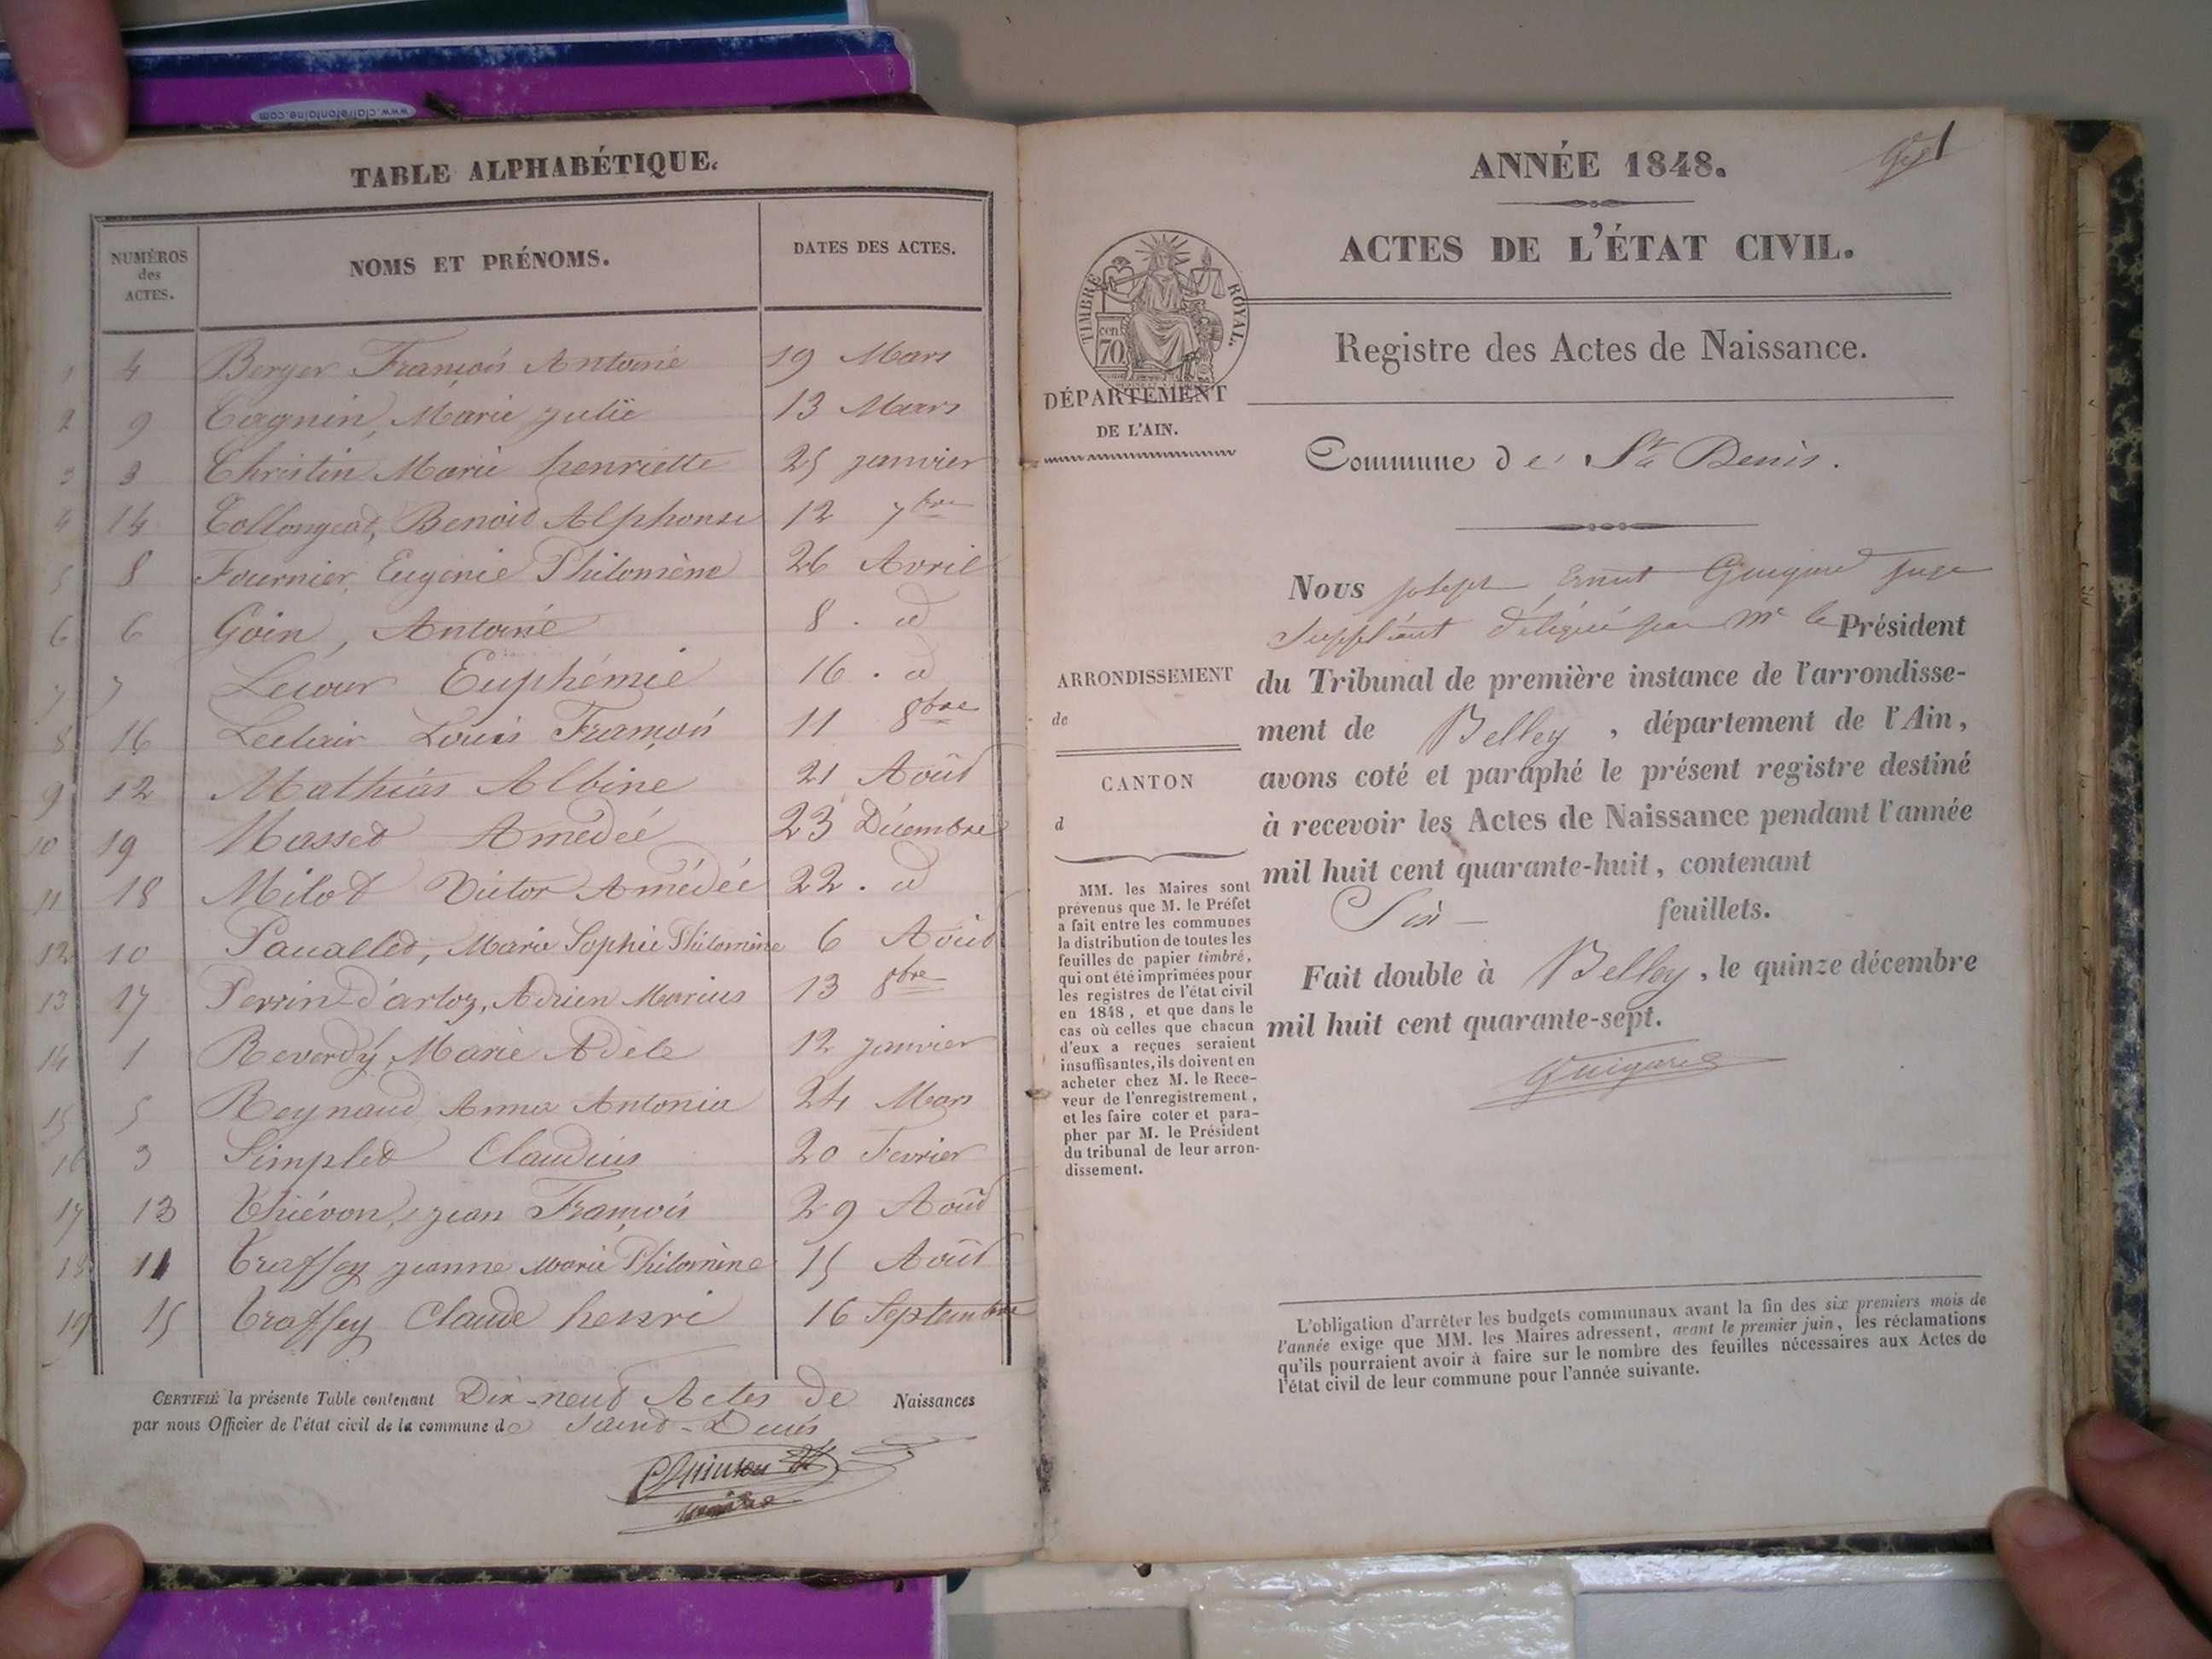 www.clairefontaine.com
TABLE ALPHABÉTIQUE.
NUMÉROS des ACTES. NOMS ET PRÉNOMS. DATES DES ACTES.
1 4 Berger François Antoine 19 Mars
2 9 Cagnin, Marie Julie 13 Mars
3 3 Christin Marie henriette 25 janvier
4 14 Collongeat, Benoit Alphonse 12 7bre
5 8 Fournier, Eugénie Philomène 26 Avril
6 6 Goin, Antoine 8 . d
7 7 Lecour Euphémie 16 . d
8 16 Leclair Louis François 11 8bre
9 12 Mathias Albine 21 Août
10 19 Masset Amédée 23 Décembre
11 18 Milot Victor Amédée 22 . d
12 10 Marie Sophie Philomène 6 Août
13 17 Perrin d'artoz, Adrien Marius 13 8bre
14 1 Reverdy, Marie Adèle 12 janvier
15 5 Reynaud Anna Antonia 24 Mars
16 3 Simplet Claudius 20 Fevrier
17 13 Thiévon, jean François 29 Août
18 11 Traffey jeanne Marie Philomène 15 Août
19 15 Traffey Claude henri 16 Septembre
CERTIFIÉ la présente Table contenant Dix-neuf Actes de Naissances
par nous Officier de l'état civil de la commune de Saint-Denis
ANNÉE 1848.
ACTES DE L'ÉTAT CIVIL.
TIMBRE ROYAL.
cen
70
Registre des Actes de Naissance.
DÉPARTEMENT
DE L'AIN.
Commune de St Denis.
Nous joseph Ernest Guigard juge
Suppléant délégué par Mr le Président
ARRONDISSEMENT
de
du Tribunal de première instance de l'arrondisse-
ment de Belley, département de l'Ain,
CANTON
d
avons coté et paraphé le présent registre destiné
à recevoir les Actes de Naissance pendant l'année
mil huit cent quarante-huit, contenant
Six feuillets.
Fait double à Belley, le quinze décembre
mil huit cent quarante-sept.
Guigard
MM. les Maires sont
prévenus que M. le Préfet
a fait entre les communes
la distribution de toutes les
feuilles de papier timbré,
qui ont été imprimées pour
les registres de l'état civil
en 1848, et que dans le
cas où celles que chacun
d'eux a reçues seraient
insuffisantes, ils doivent en
acheter chez M. le Rece-
veur de l'enregistrement,
et les faire coter et para-
pher par M. le Président
du tribunal de leur arron-
dissement.
L'obligation d'arrêter les budgets communaux avant la fin des six premiers mois de
l'année exige que MM. les Maires adressent, avant le premier juin, les réclamations
qu'ils pourraient avoir à faire sur le nombre des feuilles nécessaires aux Actes de
l'état civil de leur commune pour l'année suivante.